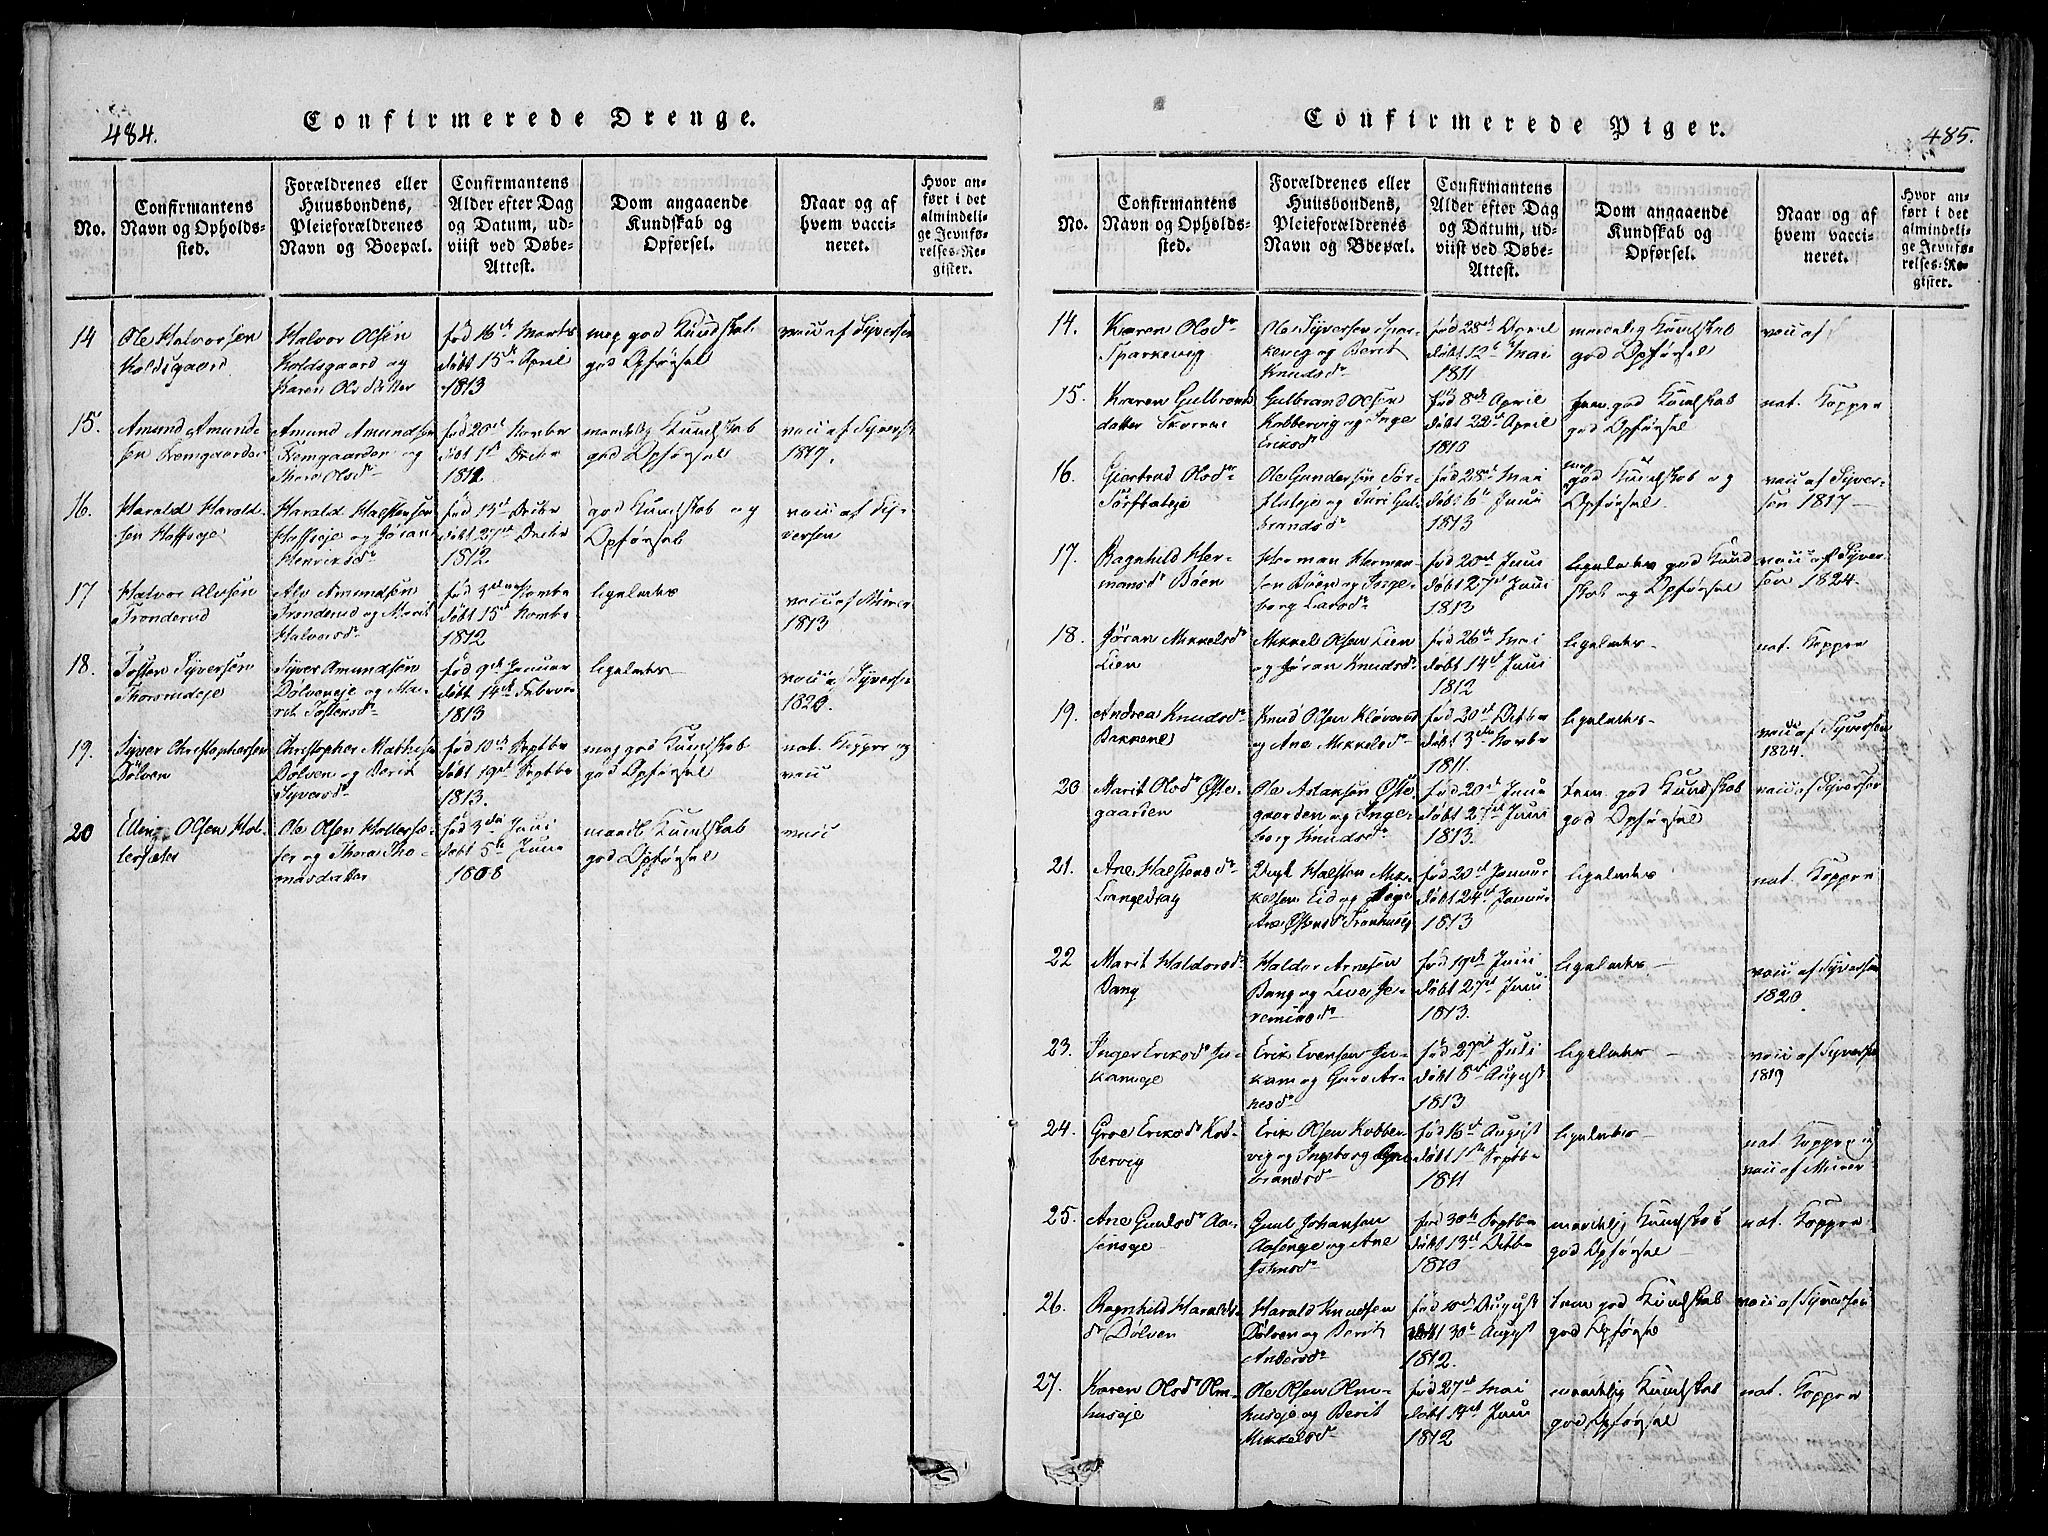 484.
Confirmerede Drenge.
No.
Confirmantens
Navn og Opholds-
sted.
Forældrenes eller
Huusbondens,
Pleieforældrenes
Navn og Boepæl.
Confirmantens
Alder efter Dag
og Datum, ud-
viist ved Døbe-
Attest.
Dom angaaende
Kundskab og
Opførsel.
Naar og af
hvem vacci-
neret.
Hvor an-
ført i det
almindeli-
ge Jevnfø-
relses-Re-
gister.
14
Ole Halvorsen
Koldsgaard
Halvor Olsen
Koldsgaard og
Karen Olsdatter
fød 16de Marts
døbt 15de April
1813
meg god Kundskab
god Opførsel
vacc af Syversen
15.
Amund Amund-
sen
Amund Amundsen
og
Thore Olsdr
fød 20de Novbr
døbt 1ste Decbr
1812
maadelig Kundskab
god Opførsel
vacc af Syvers
1817.
16.
Harald Harald-
sen Hoffseje
Harald Halstensen
Hoffseje og Jøran
Henriksdr
fød 13de Decbr
døbt 27de Decbr
1812
god Kundskab og
Opførsel
vacc af Sy-
versen
17
Halvor Alvsen
Trønderud
Alv Amundsen
Trønderud og Marit
Halvorsdr
fød Novbr
døbt 15de Novbr
1812
ligeledes
vacc af Murer
1813
18.
Tosten Syversen
Thorsrudeje
Syver Amundsen
Dølveneje og Ma-
rit Tostensdr
fød 9de Januar
døbt 14de Februar
1813
ligeledes
vacc af Syversen
1820.
19.
Syver Christophersen
Dølven
Christopher Mathisen
Dølven og Berit
Syversdr
fød 10de Septbr
døbt 19de Septbr
1813.
meg god Kundskab
god Opførsel
nat. Kopper og
vacc
20
Elling Olsen Hol-
lersæter
Ole Olsen Hollersæ-
ter og Thora Tho-
masdatter
fød 3die Juni
døbt 5te Juni
1808
maadl Kundskab
god Opførsel
vacc
Confirmerede Piger.
485.
No.
Confirmantens
Navn og Opholds-
sted.
Forældrenes eller
Huusbondens,
Pleieforældrenes
Navn og Boepæl.
Confirmantens
Alder efter Dag
og Datum, ud-
viist ved Døbe-
Attest.
Dom angaaende
Kundskab og
Opførsel.
Naar og af
hvem vacci-
neret.
Hvor an-
ført i det
almindeli-
ge Jevnfø-
relses-Re-
gister.
14.
Karen Olsdr
Sparkevig
Ole Syversen Spar-
kevig og Berit
Knudsdr
fød 28de April
døbt 12te Mai
1811
maadelig Kundskab
god Opførsel
vacc af
15.
Karen Gulbrands
datter
Gulbrand Olsen
Kobbervig og Inge
Eriksdr
fød 8de April
døbt 22de April
1810
tem. god Kundskab
god Opførsel
nat. Kopper
16.
Giertrud Olsdr
Ole Gundersen Sør-
og Guri Gul-
brandsdr
fød 28de Mai
døbt 6te Juni
1813
meg
god Kundskab og
Opførsel
vacc af Syver-
sen 1817
17.
Ragnhild Her-
mansdr Bøen
Herman Herman-
sen Bøen og Inge-
borg Larsdr
fød 20de Juni
døbt 27de Juni
1813
ligeledes god Kund
skab og Opførsel
vacc af Syver-
sen 1824.
18.
Jøran Mikkelsdr
Lien
Mikkel Olsen Lien
og Jøran Knudsdr
fød 26de Mai
døbt 14de Juni
1812
ligeledes
nat. Kopper
19.
Andrea Knudsdr
Bakkene
Knud Olsen
og Ane Mikkelsdr
fød 20de Octbr
døbt 3die Novbr
1811.
ligeledes
vacc af Syversen
1824.
20
Marit Olsdr Øste-
gaarden
Ole Aslaksen Øste
gaarden og Inge-
borg Knudsdr
fød 20de Juni
døbt 27de Juni
1813.
tem. god Kundskab
god Opførsel
vacc af Syversen
21.
Ane Halstensdr
Langeslag
Halsten Mik-
kelsen Eid og
Ane
fød 20de Januar
døbt 24de Januar
1813
ligeledes
nat. Kopper
22
Marit Haldorsdr
Bang
Haldor Arnesen
Bang og Live Je-
remiasdr
fød 19de Juni
døbt 27de Juni
1813.
ligeledes
vacc af Syversen
1820
23.
Inger Eriksdr Ju-
kameje
Erik Evensen Ju-
kam og Guro Ar-
nesdr
fød 27de Juli
døbt 8de August
1813
ligeledes
vacc af Syversen
1819
24.
Groe Eriksdr Kob-
bervig
Erik Olsen Kobber
vig og Ingeborg
brandsdr
fød 16de August
døbt 1ste Septbr
1811
ligeledes
nat. Kopper og
vacc af Murer
25.
Ane Gulsdr Aa-
senseje
Johansen
Aasenje og Ane
Johnsdr
fød 30te Septbr
døbt 13de Octbr
1810
maadelig Kundskab
god Opførsel
nat. Kopper
26.
Ragnhild Haralds-
dr Dølven
Harald Knudsen
Dølven og Berit
Andersdr
fød 10de August
døbt 30te August
1812.
tem god Kundskab
god Opførsel
vacc af Syversen
27.
Karen Olsdr Olm-
huseje
Ole Olsen Olm-
huseje og Berit
Mikkelsdr
fød 27de Mai
døbt 14de Juni
1812
maadelig Kundskab
god Opførsel
nat. Kopper